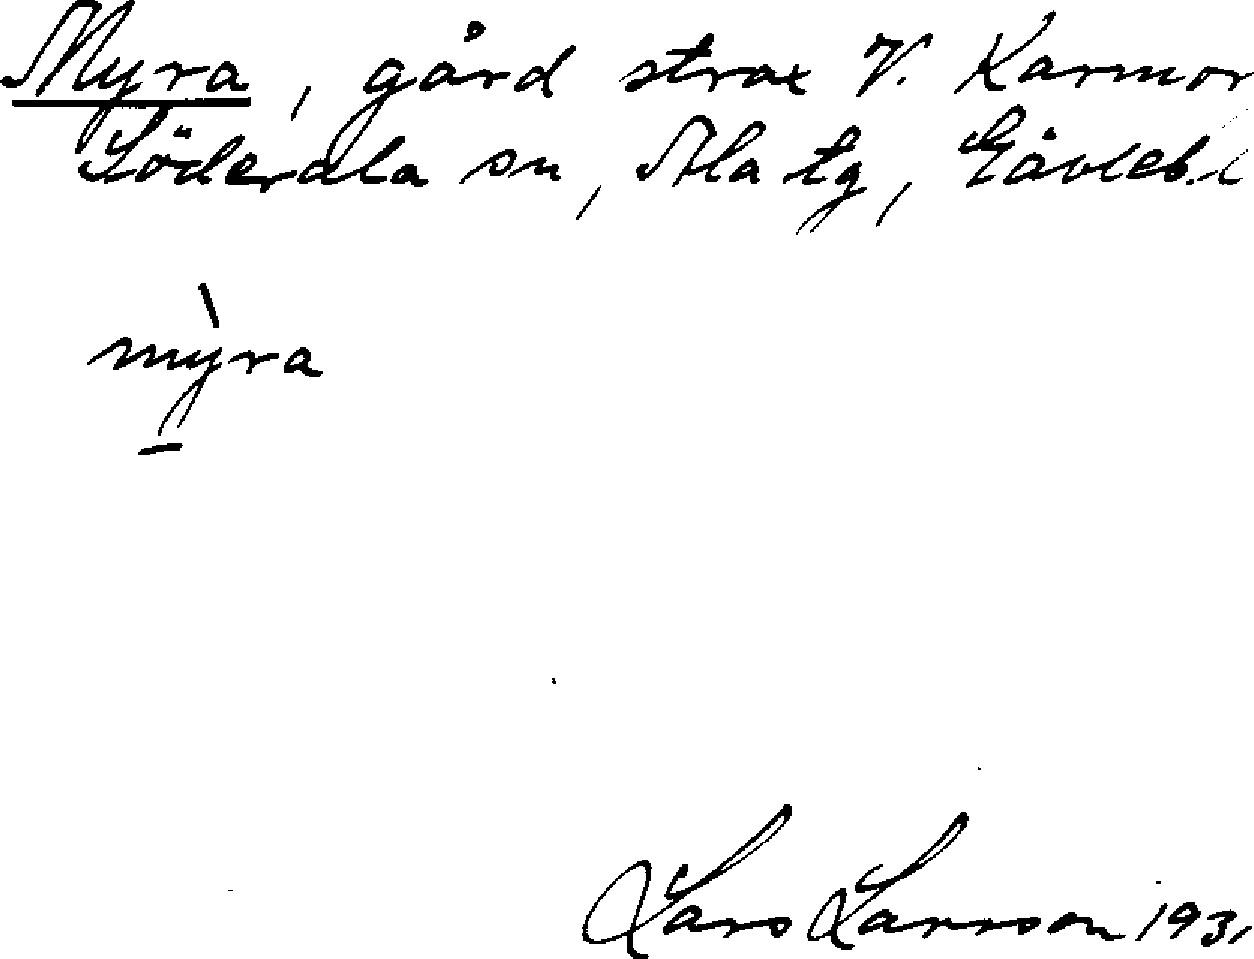 Myra, gård strax V. Karmor
Söderala sn, Ala tg, Gävleb. l
mỳra
Lars Larsson 193